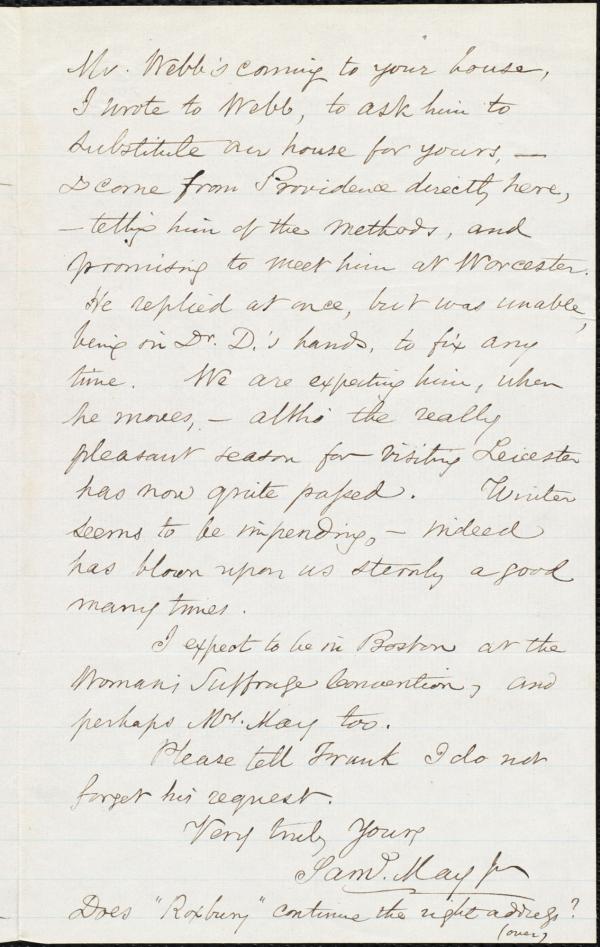 Mr. Webb's coming to your house,
I wrote to Webb, to ask him to
substitute our house for yours, —
& come from Providence directly here,
— tellg him of the methods, and
promising to meet him at Worcester.
He replied at once, but was unable,
being in Dr. D.'s hands, to fix any
time. We are expecting him, when
he moves, — altho' the really
pleasant season for visiting Leicester
has now quite passed. Winter
seems to be impending, — indeed
has blown upon us sternly a good
many times.
I expect to be in Boston at the
Woman's Suffrage Convention, and
perhaps Mrs. May too.
Please tell Frank I do not
forget his request.
Very truly Yours,
Saml. May Jr
Does "Roxbury" continue the right address?
(over)